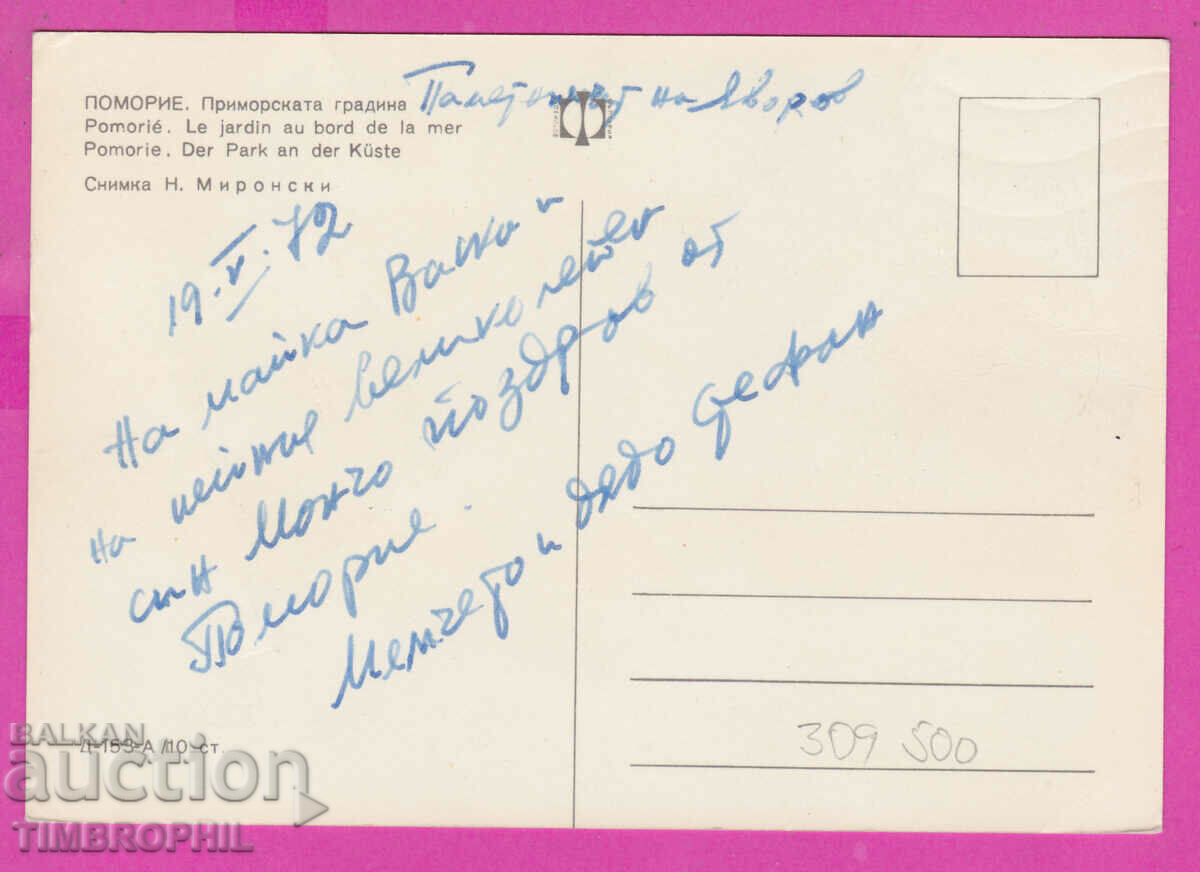 ПОМОРИЕ. Приморската градина
Паметникът на Яворов
Pomorié. Le jardin au bord de la mer
Pomorie. Der Park an der Küste
Снимка Н. Миронски
19.V.72
На майка Васка и
на нейния великолепен
син Мончо поздрав от
Поморие.
и дядо Стефан
309 500
Д-153-А /10 ст.
BALKAN
auction
TIMBROPHIL